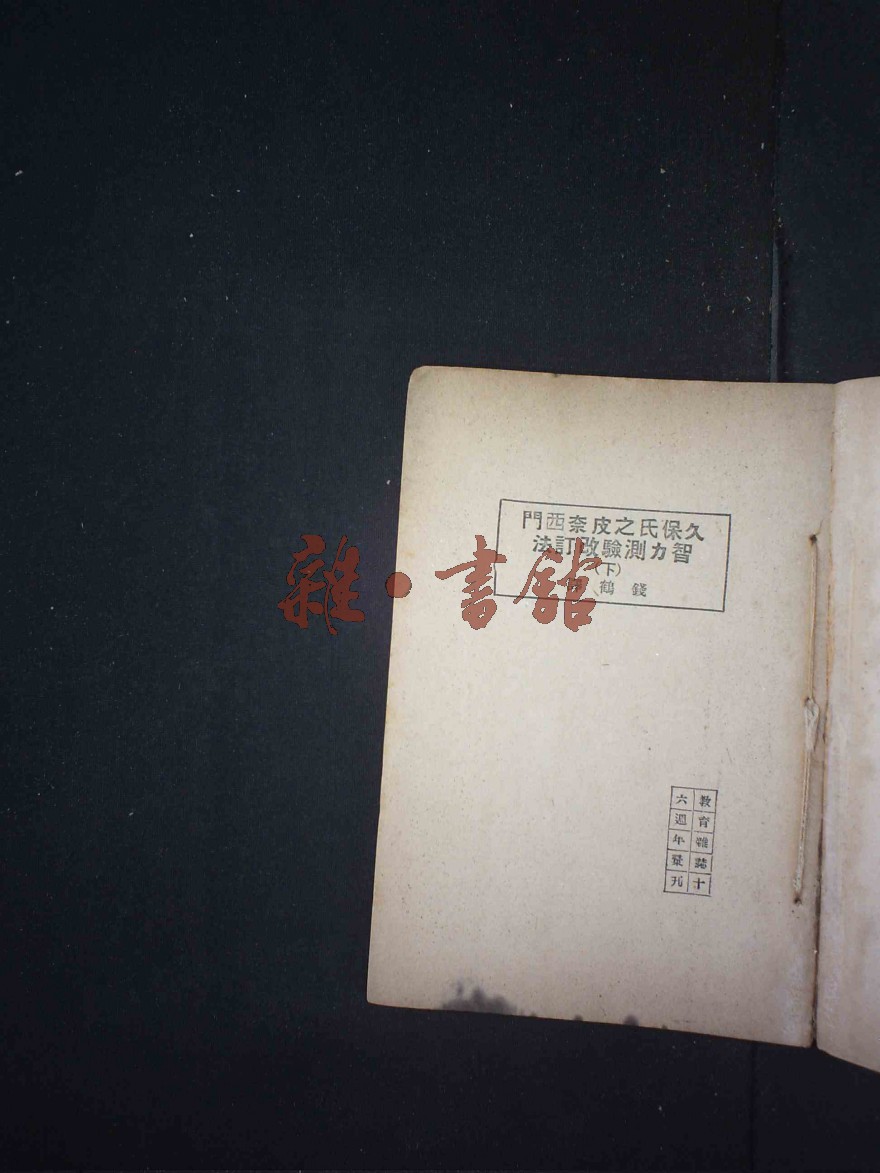 久保氏之皮奈西門
智力測驗改訂法
(下)
錢鶴
雜·書館
教育雜誌十
六週年彙刊